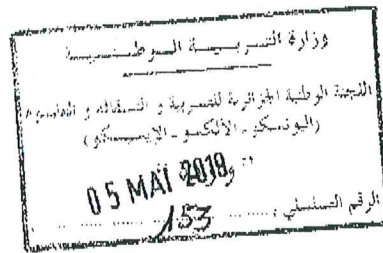 وزارة التربية الوطنية
اللجنة الوطنية الجزائرية للتربية و الثقافة و العلوم
(اليونسكو - الألكسو - الإيسيسكو)
05 MAI 2019
الرقم التسلسلي : 153